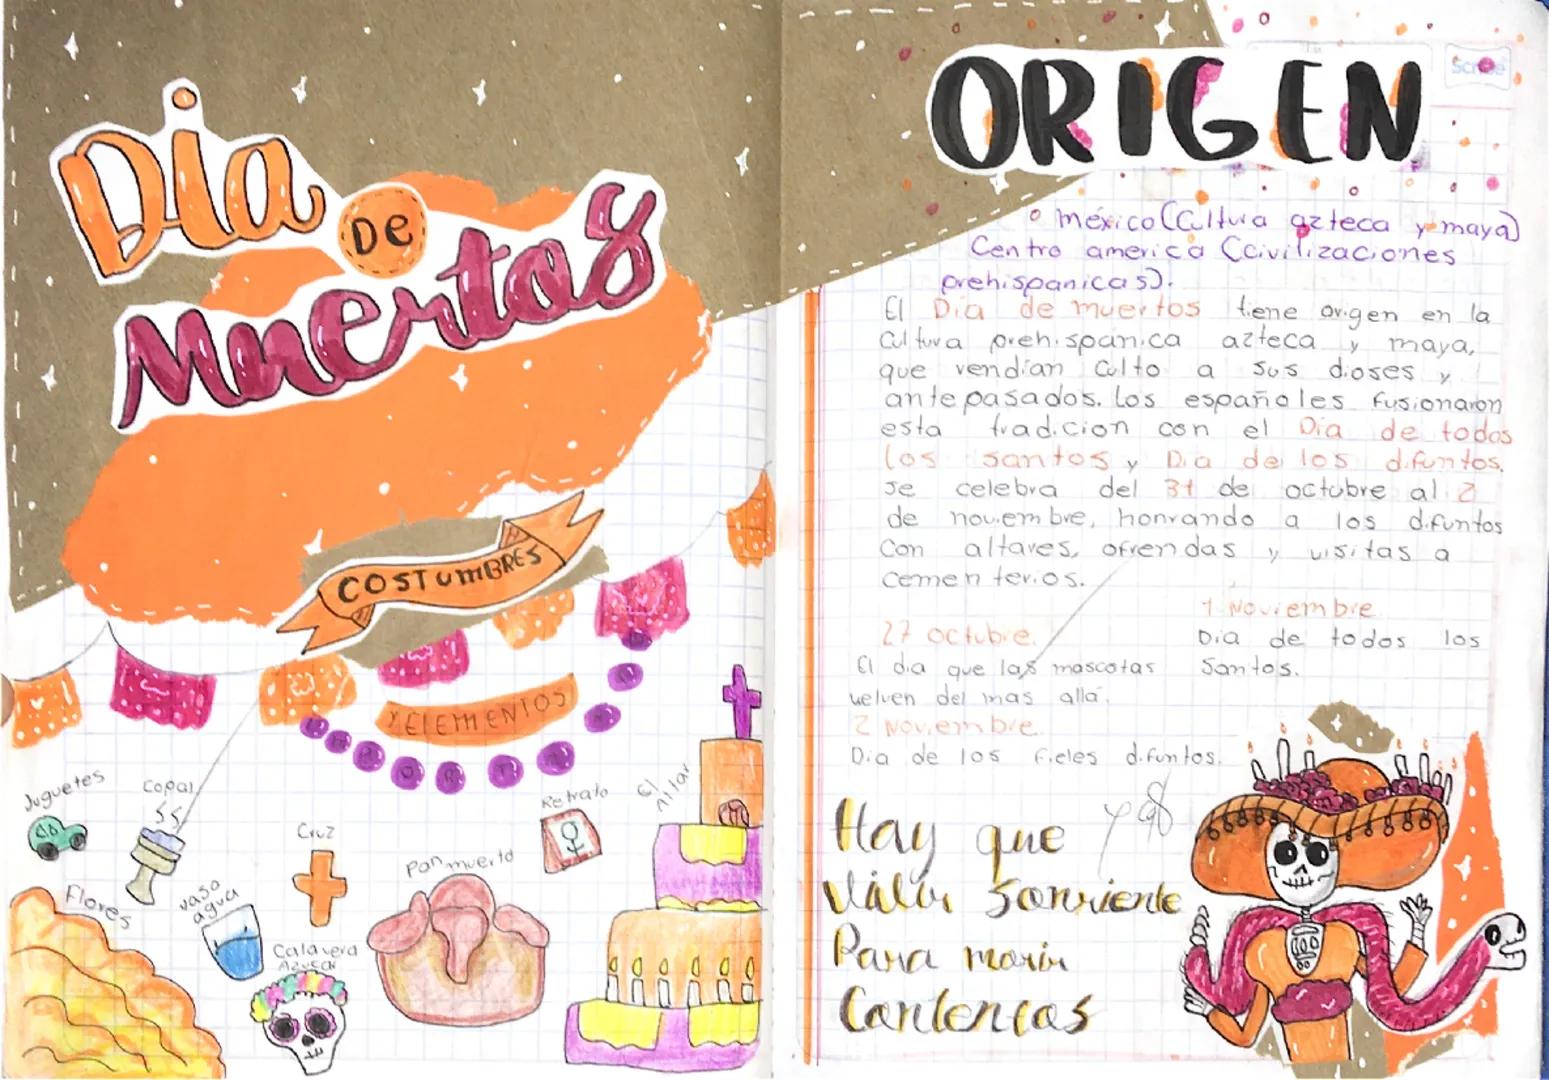 Dia
De
Muertos
COSTUMBRES
Y ELEMENTOS
Juguetes
Copal
Cruz
Retrato
El Altar
Flores
vaso
agua
Pan muerto
Calavera
Azucar
ORIGEN
Scribe
México (Cultura azteca y maya)
Centro america (civilizaciones
prehispanicas).
El Dia de muertos tiene origen en la
Cultura prehispanica azteca y maya,
que vendían culto a sus dioses y
antepasados. Los españoles fusionaron
esta tradicion con el Dia de todos
los santos y Dia de los difuntos.
Se celebra del 31 de octubre al 2
de noviembre, honrando a los difuntos
con altares, ofrendas y visitas a
cementerios.
27 octubre.
El dia que las mascotas
vuelven del mas allá.
1 Noviembre.
Dia de todos los
Santos.
2 Noviembre.
Dia de los fieles difuntos.
Hay que
Vivir Sonriente
Para morir
Contentos